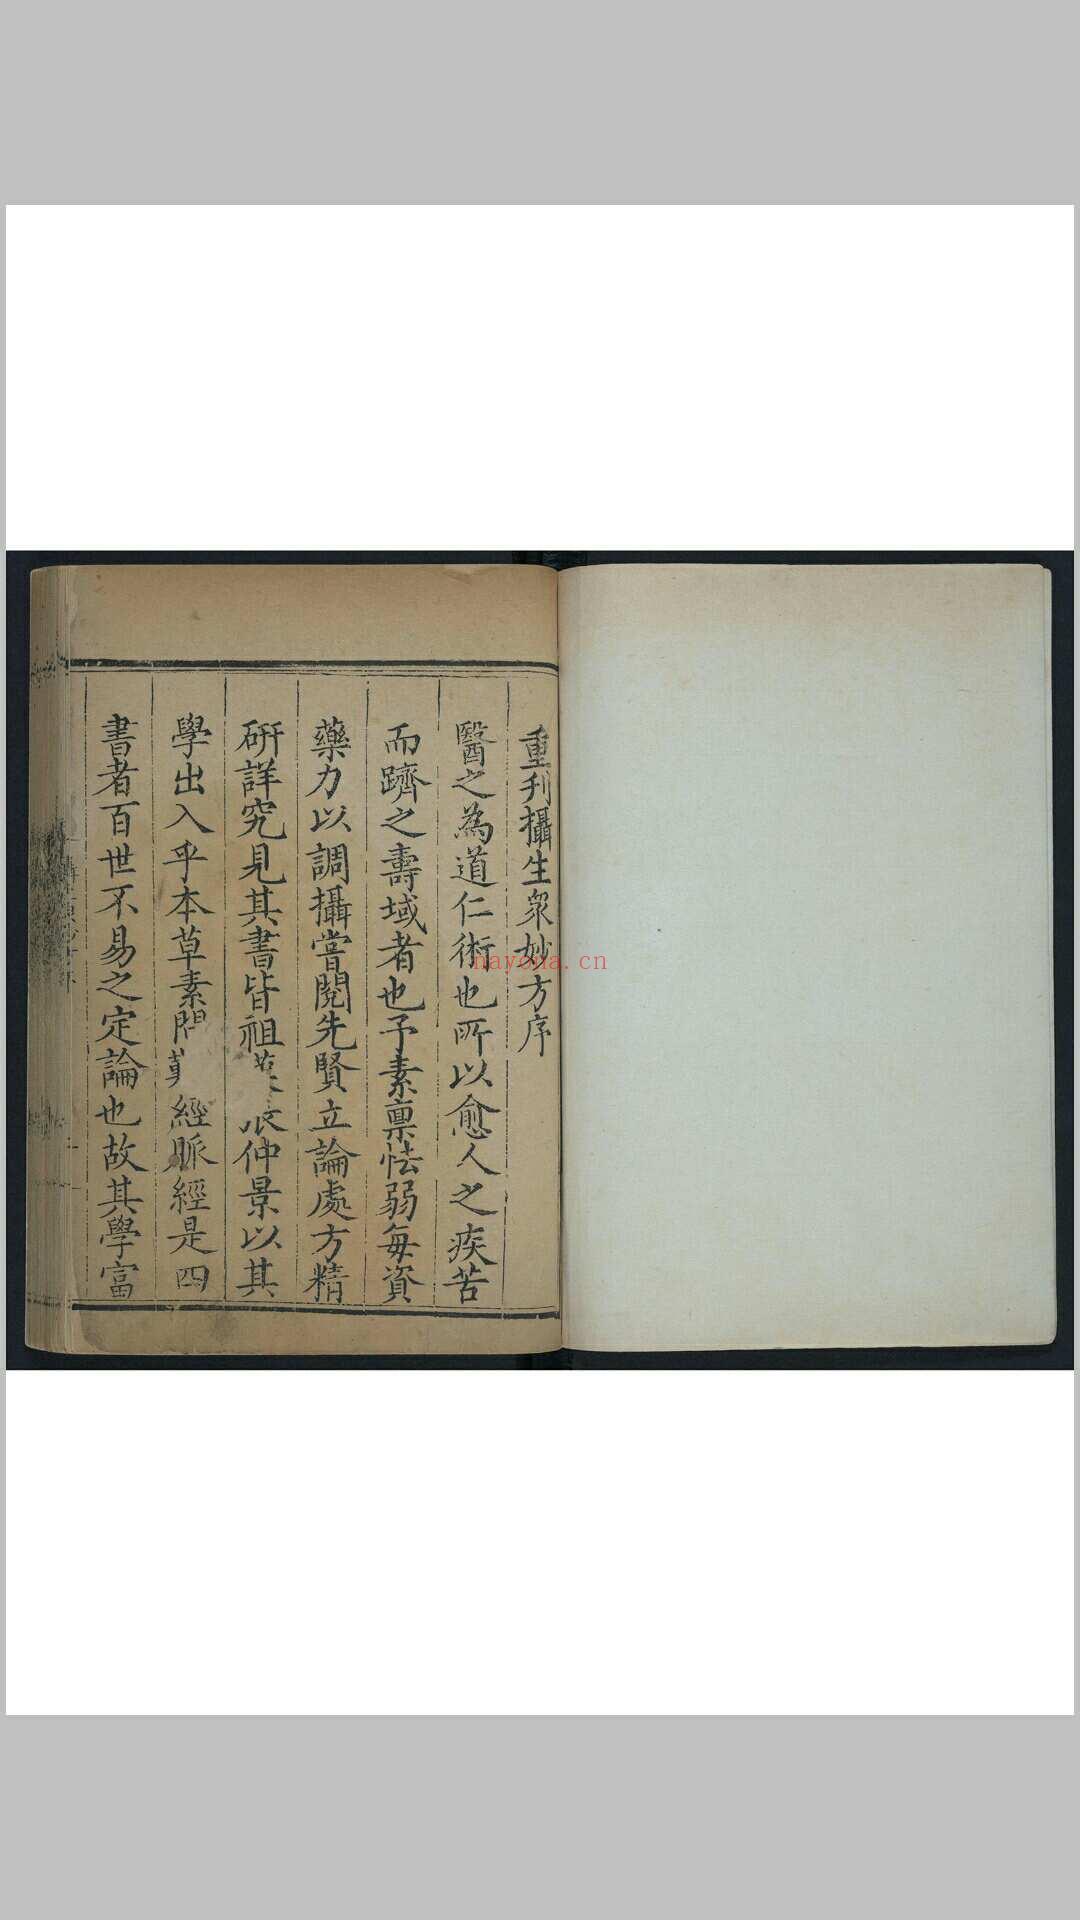 重刋攝生衆妙方序
醫之為道仁術也所以愈人之疾苦
而躋之壽域者也予素禀怯弱每資
藥力以調攝嘗閱先賢立論處方精
研詳究見其書皆祖仲景以其
學出入乎本草素問難經脈經是四
書者百世不易之定論也故其學富
nayona.cn